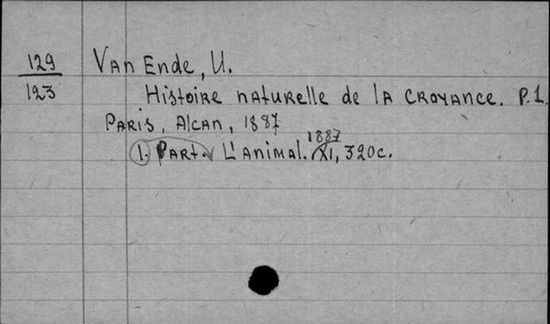 129
123
Van Ende, U.
Histoire naturelle de la croyance. P.1.
Paris, Alcan, 1887
1. Part. L'animal. 1887 XI, 320c.